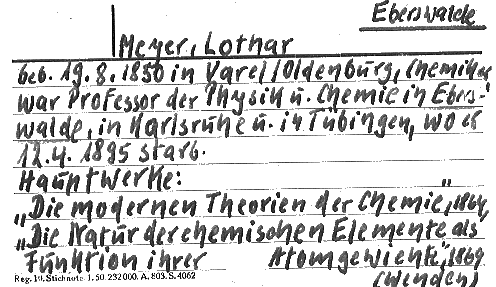 Eberswalde
Meyer, Lothar
geb. 19.8.1850 in Varel/Oldenburg, Chemiker
war Professor der Physik u. Chemie in Ebers-
walde, in Karlsruhe u. in Tübingen, wo er
12.4.1895 starb.
Hauptwerke:
„Die modernen Theorien der Chemie", 1864,
„Die Natur der chemischen Elemente als
Funktion ihrer Atomgewichte", 1869
Reg. 10. Stichnote. 1. 50. 232000. A. 803. S. 4062
(Wenden)